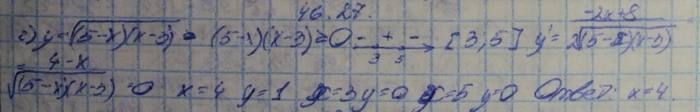 46.27.
2) y=√(5-x)(x-3) = (5-x)(x-3)≥0 - + - 3 5 [3,5] y' = -2x+8 / 2√(5-x)(x-3)
= 4-x / √(5-x)(x-3) =0 x=4 y=1 x=3 y=0 x=5 y=0 Ответ: x=4.